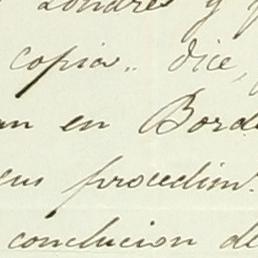 Londres y
copia.. dice,
en Bord
procedim.
conclucion de